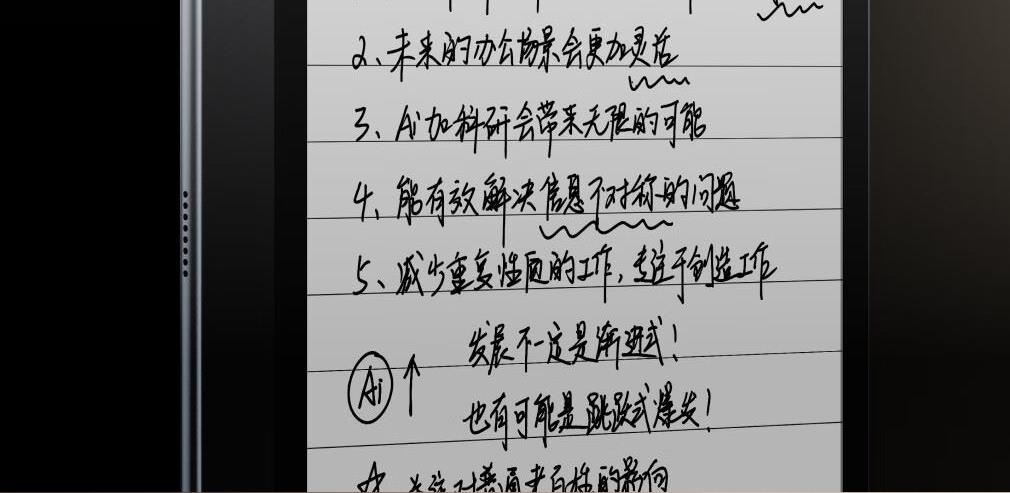 2、未来的办公场景会更加灵活
3、Ai加科研会带来无限的可能
4、能有效解决信息不对称的问题
5、减少重复性质的工作,专注于创造工作
发展不一定是渐进式!
Ai
也有可能是跳跃式爆发!
普通老百姓的影响